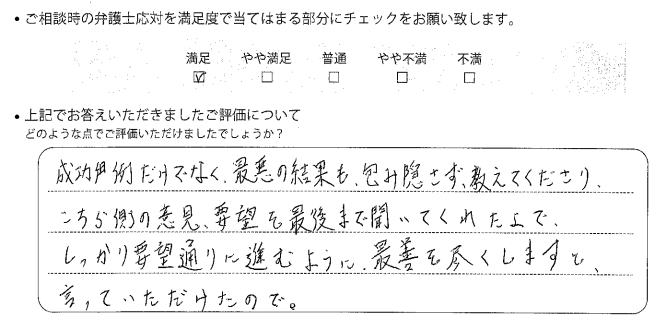 • ご相談時の弁護士応対を満足度で当てはまる部分にチェックをお願い致します。
満足 やや満足 普通 やや不満 不満
☑ ☐ ☐ ☐ ☐
• 上記でお答えいただきましたご評価について
どのような点でご評価いただけましたでしょうか？
成功例だけでなく、最悪の結果も、包み隠さず、教えてくださり、
こちら側の意見、要望を最後まで聞いてくれた上で、
しっかり要望通りに進むように、最善を尽くしますと、
言っていただけたので。